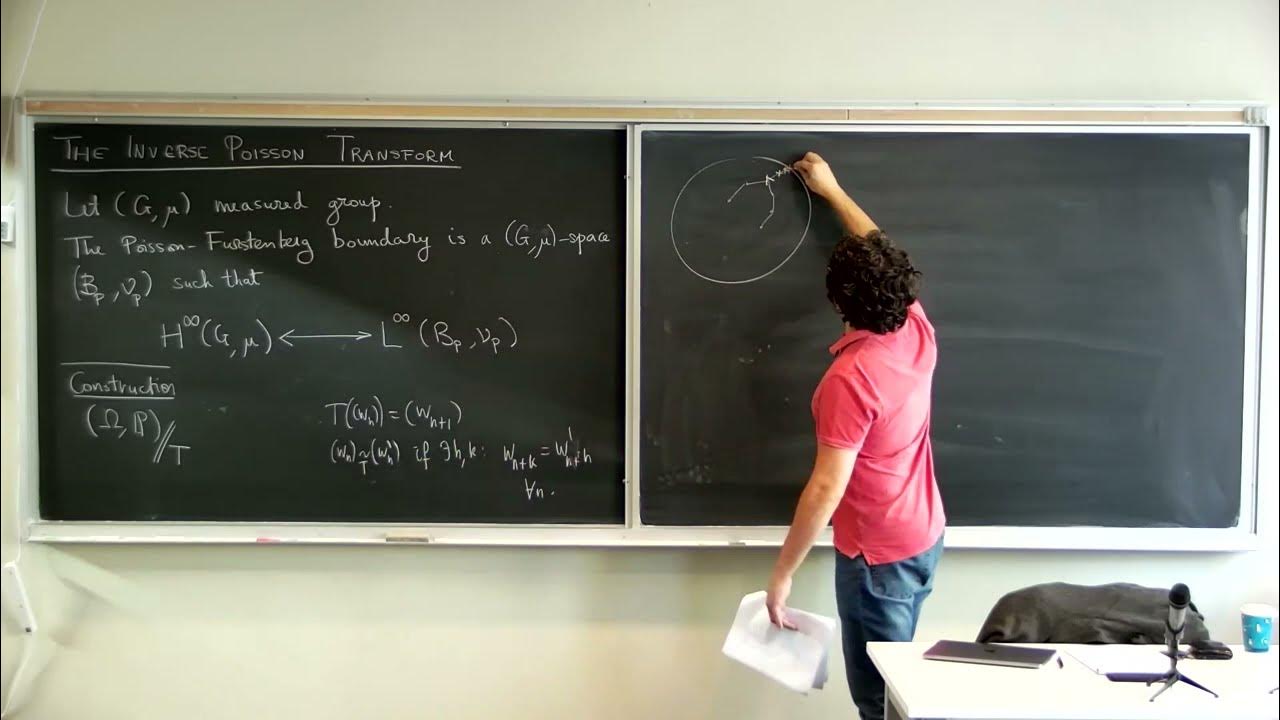 THE INVERSE POISSON TRANSFORM
Let (G, μ) measured group.
The Poisson-Furstenberg boundary is a (G, μ)-space
(B_p, ν_p) such that
H^∞(G, μ) ⟷ L^∞(B_p, ν_p)
Construction
(Ω, ℙ)//T
T((w_n)) = (w_{n+1})
(w_n) ~_T (w'_n) if ∃ h, k : w_{n+k} = w'_{n+h}
∀n.